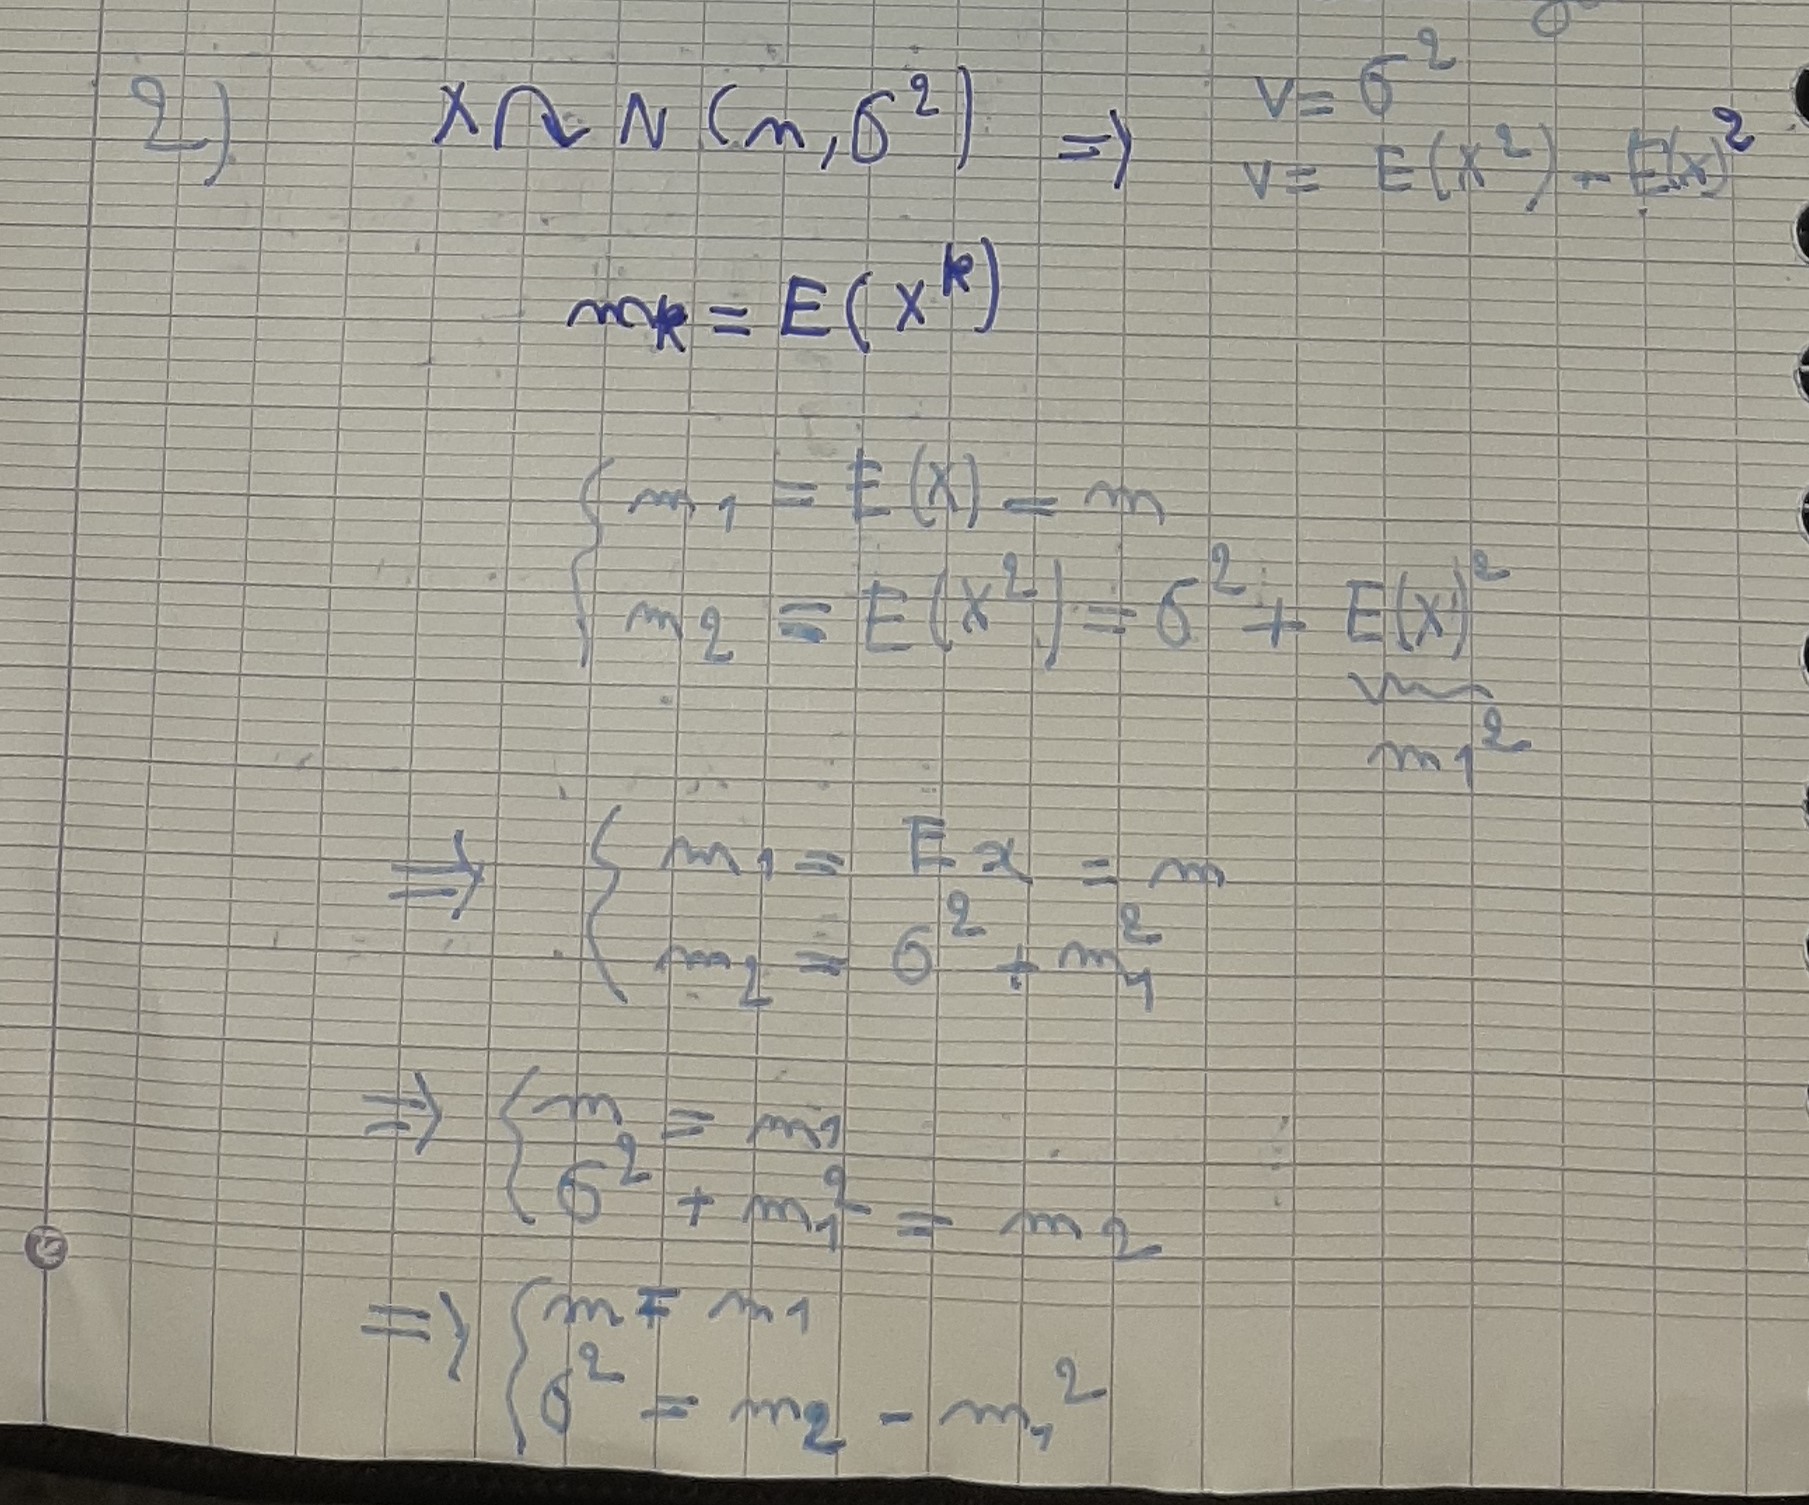 2) X ↷ N(m, σ²) ⇒ V = σ²
V = E(X²) - E(X)²
mk = E(X^k)
{ m1 = E(X) = m
m2 = E(X²) = σ² + E(X)²
m1²
⇒ { m1 = E x = m
m2 = σ² + m1²
⇒ { m = m1
σ² + m1² = m2
⇒ { m = m1
σ² = m2 - m1²